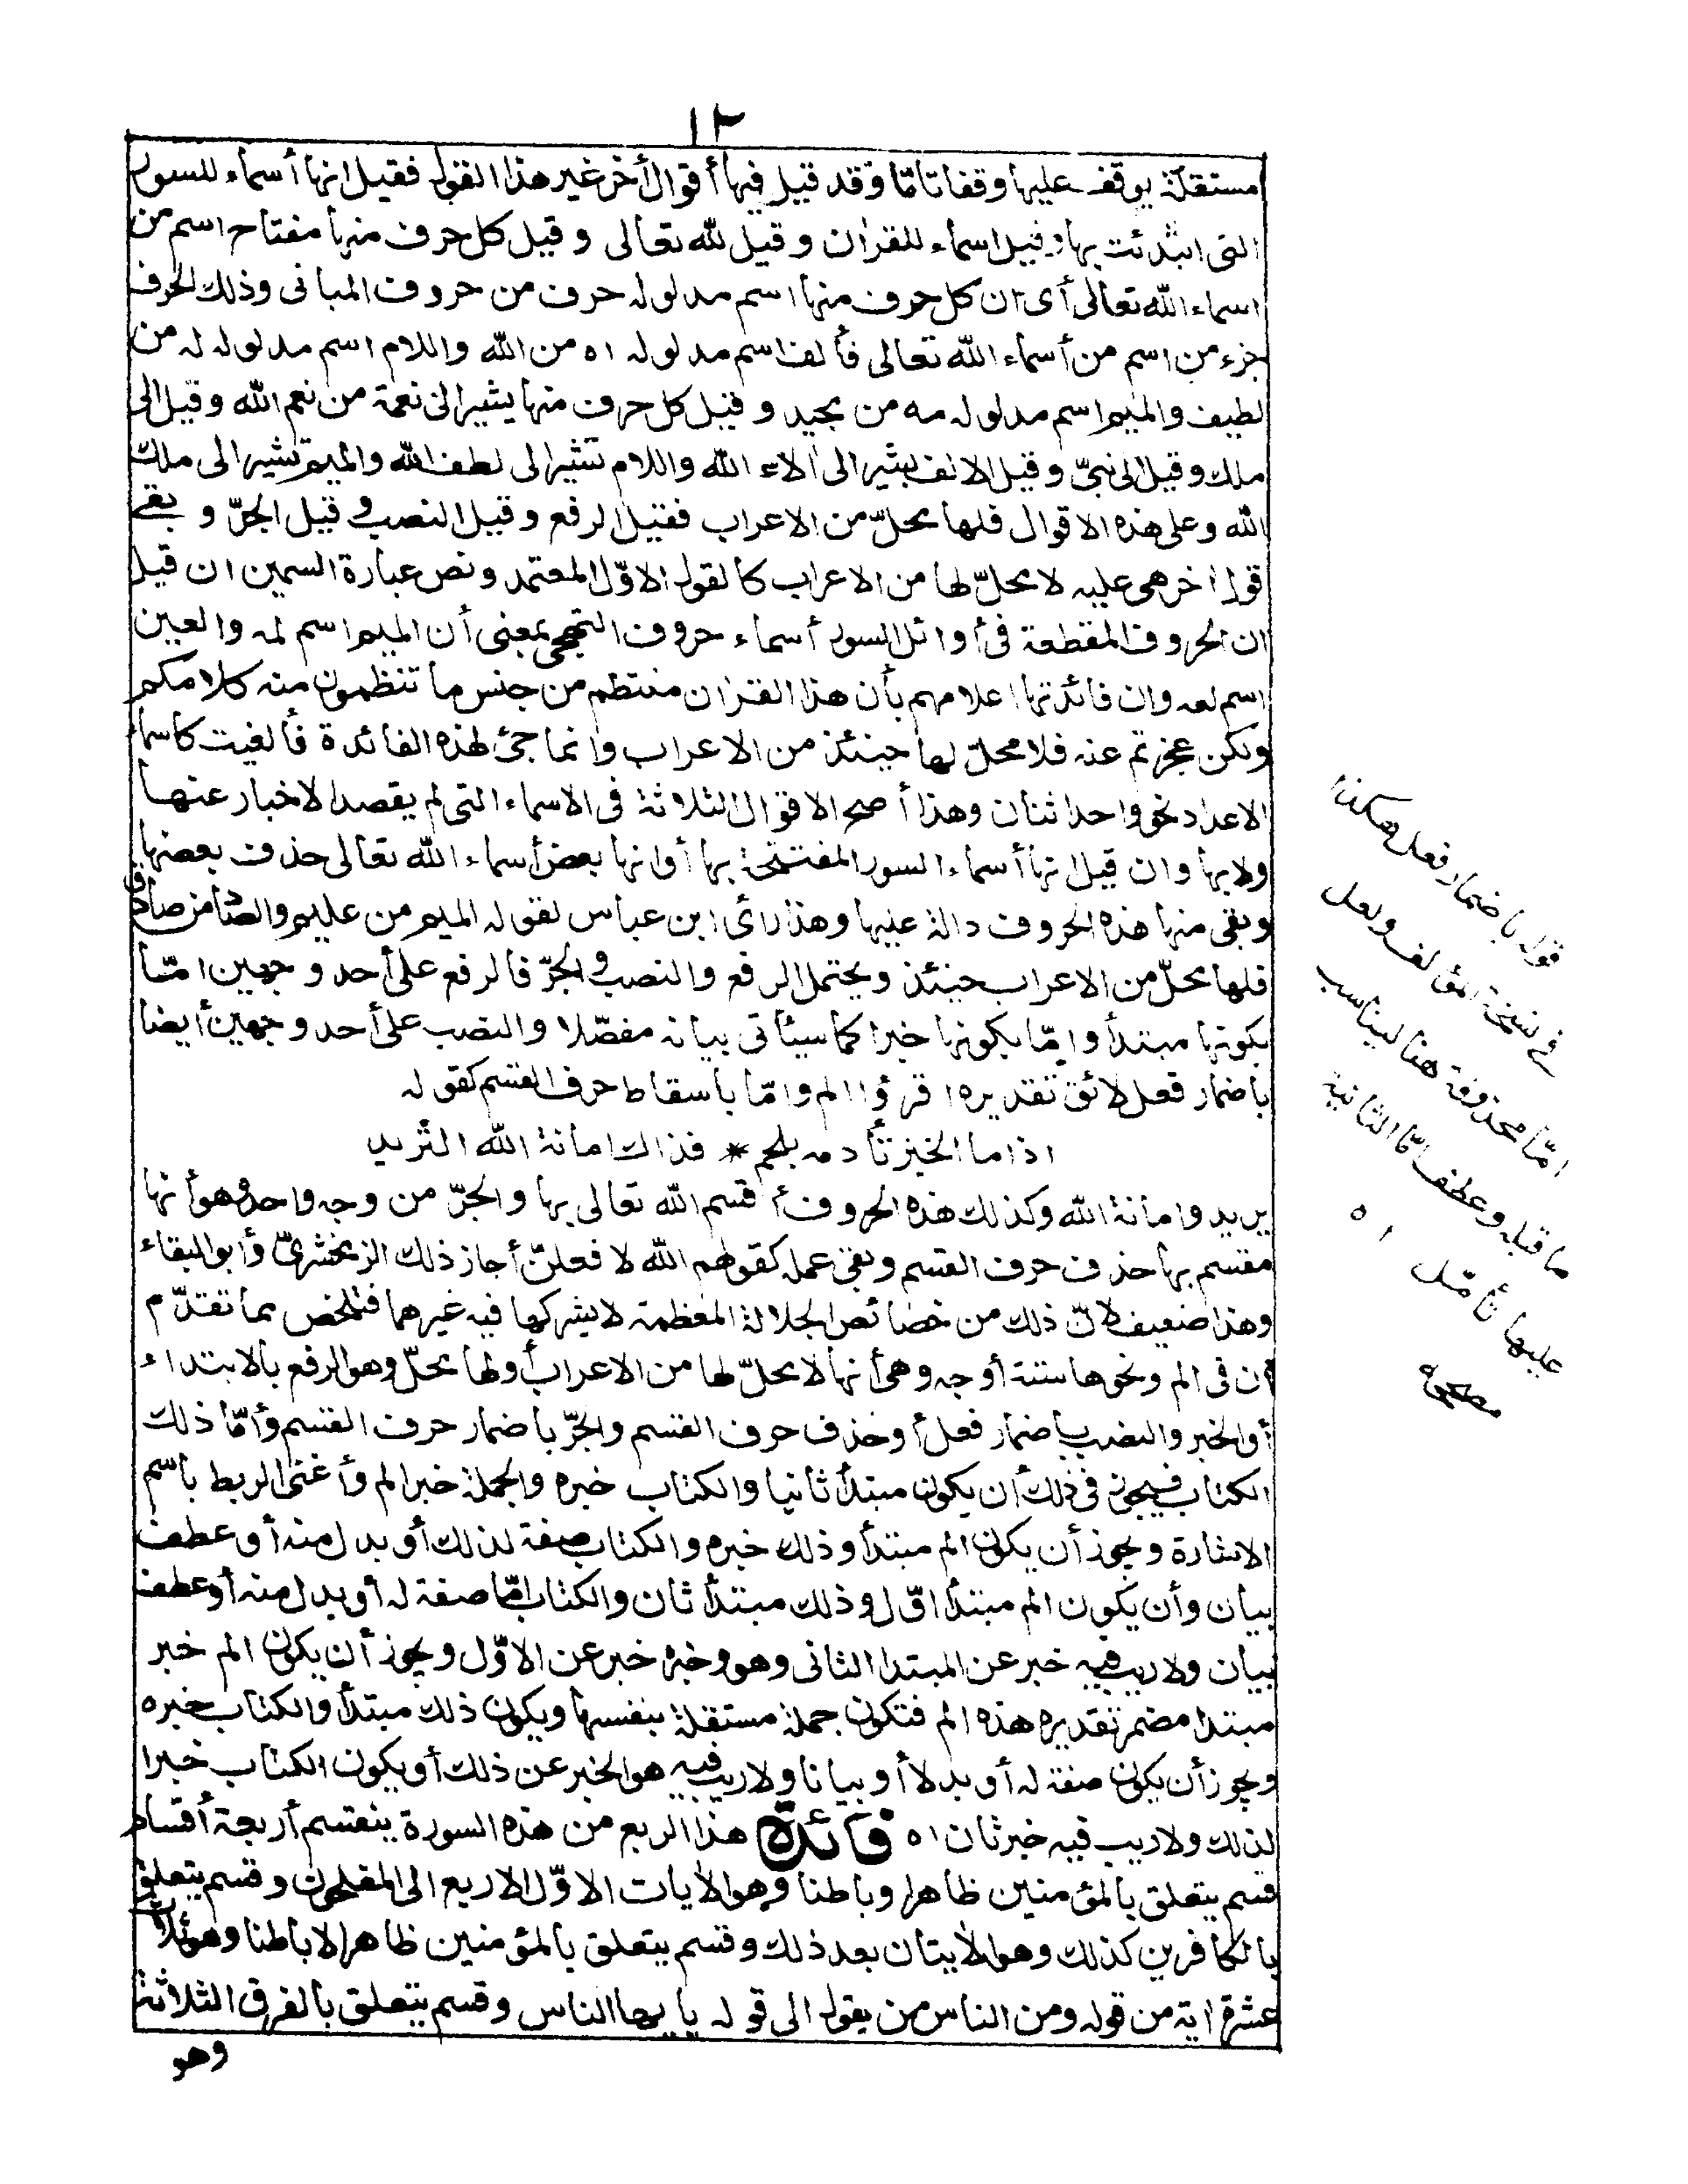 ١٢
مستقلة يوقف عليها وقفا تامّا وقد قيل فيها أقوال أخر غير هذا القول فقيل انها أسماء للسور
التى ابتدئت بها وقيل اسماء للقرآن وقيل لله تعالى وقيل كل حرف منها مفتاح اسم من
اسماء الله تعالى أى ان كل حرف منها اسم مدلوله حرف من حروف المبانى وذلك الحرف
جزء من اسم من أسماء الله تعالى فألف اسم مدلوله اه من الله واللام اسم مدلوله له من
لطيف والميم اسم مدلوله مه من مجيد وقيل كل حرف منها يشير الى نعمة من نعم الله وقيل الى
ملك وقيل الى نبىّ وقيل الالف يشير الى آلاء الله واللام تشير الى لطف الله والميم تشير الى ملك
الله وعلى هذه الاقوال فلها محلّ من الاعراب فقيل الرفع وقيل النصب وقيل الجرّ و بقى
قول اخر هى عليه لا محلّ لها من الاعراب كالقول الاوّل المعتمد ونص عبارة السمين ان قيل
ان الحروف المقطعة فى أوائل السور أسماء حروف التهجى بمعنى أن الميم اسم لمه والعين
اسم لعه وان فائدتها اعلامهم بأن هذا القرآن منتظم من جنس ما تنظمون منه كلامكم
ولكن عجزتم عنه فلا محلّ لها حينئذ من الاعراب وانما جئ لهذه الفائدة فألغيت كاسماء
الاعداد نحو واحد اثنان وهذا أصح الاقوال الثلاثة فى الاسماء التى لم يقصد الاخبار عنها
ولا بها وان قيل انها أسماء السور المفتتحة بها أو انها بعض أسماء الله تعالى حذف بعضها
وبقى منها هذه الحروف دالة عليها وهذا رأى ابن عباس لقوله الميم من عليم والصاد من صادق
فلها محلّ من الاعراب حينئذ ويحتمل الرفع والنصب والجرّ فالرفع على أحد وجهين امّا
بكونها مبتدأ وامّا بكونها خبرا كما سيأتى بيانه مفصّلا والنصب على أحد وجهين أيضا
باضمار فعل لائق تقديره اقرؤا الم وامّا باسقاط حرف القسم كقوله
اذا ما الخبز تأدمه بلحم * فذاك امانة الله الثريد
يريد وامانة الله وكذلك هذه الحروف أقسم الله تعالى بها والجرّ من وجه واحد وهو أنها
مقسم بها حذف حرف القسم وبقى عمله كقولهم الله لافعلنّ أجاز ذلك الزمخشرىّ وأبو البقاء
وهذا ضعيف لانّ ذلك من خصائص الجلالة المعظمة لا يشركها فيه غيرهما فتلخص مما تقدّم
أن فى الم ونحوها ستة أوجه وهى أنها لا محلّ لها من الاعراب أو لها محلّ وهو الرفع بالابتداء
أو الخبر والنصب باضمار فعل أو حذف حرف القسم والجرّ باضمار حرف القسم وأمّا ذلك
الكتاب فيجوز فى ذلك أن يكون مبتدأ ثانيا والكتاب خبره والجملة خبر الم وأغنى الربط باسم
الاشارة ويجوز أن يكون الم مبتدأ وذلك خبره والكتاب صفة لذلك أو بدل منه أو عطف
بيان وأن يكون الم مبتدأ اوّل وذلك مبتدأ ثان والكتاب امّا صفة له أو بدل منه أو عطف
بيان ولا ريب فيه خبر عن المبتدا الثانى وهو وخبره خبر عن الاوّل ويجوز أن يكون الم خبر
مبتدا مضمر تقديره هذه الم فتكون جملة مستقلة بنفسها ويكون ذلك مبتدأ والكتاب خبره
ويجوز أن يكون صفة له أو بدلا أو بيانا ولا ريب فيه هو الخبر عن ذلك أو يكون الكتاب خبرا
لذلك ولا ريب فيه خبر ثان اه فائدة هذا الربع من هذه السورة ينقسم أربعة أقسام
قسم يتعلق بالمؤمنين ظاهرا وباطنا وهو الآيات الاوّل الاربع الى المفلحون وقسم يتعلق
بالكافرين كذلك وهو الآيتان بعد ذلك وقسم يتعلق بالمؤمنين ظاهرا لا باطنا وهو ثلاث
عشرة اية من قوله ومن الناس من يقول الى قوله يا يها الناس وقسم يتعلق بالفرق الثلاثة
وهو
قوله باضمار فعل هكذا
فى نسخة المؤلف ولعل
امّا محذوفة هنا ليناسب
ما قبله وعطف امّا الثانية
عليها تأمّل اه
مصححه